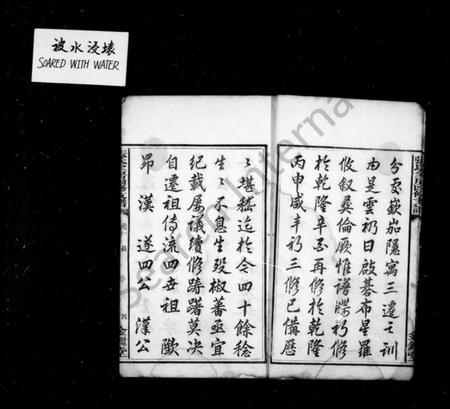 被水浸壞
SOARED WITH WATER
分疆嶽岀隱寓三遷之訓
由是雲礽日啟碁布星羅
攸叙彝倫厥惟譜牒初修
於乾隆辛 再修於乾隆
丙申咸豐初三修已備歷
歷堪稽迄於今四十餘稔
生生不息生齒椒蕃亟宜
紀載屢議續修躊躇莫决
自遷祖傳流四世祖 歐
昂 漢 遂四公 漢公